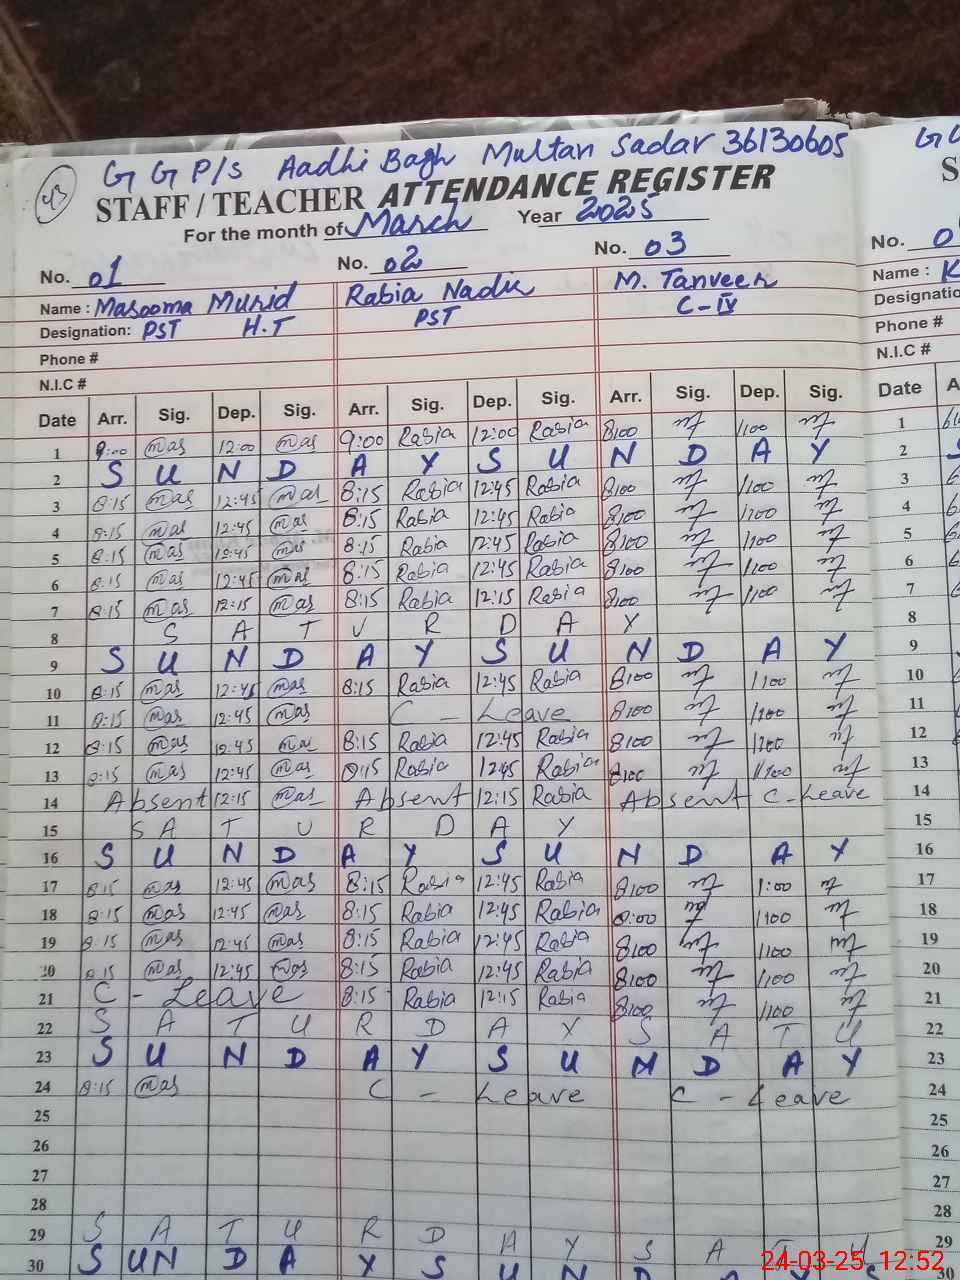 43
G G P/s Aadhi Bagh Multan Sadar 36130605
STAFF / TEACHER ATTENDANCE REGISTER
For the month of March Year 2025
No. 01 No. 02 No. 03 No.
Name : Masooma Murid Rabia Nadir M. Tanveer Name : K
Designation: PST H.T PST C-IV
Phone # Phone #
N.I.C # N.I.C #
Date Arr. Sig. Dep. Sig. Arr. Sig. Dep. Sig. Arr. Sig. Dep. Sig. Date
1 9:00 mas 12:00 mas 9:00 Rabia 12:00 Rabia 8:00 1:00 1
2 S U N D A Y S U N D A Y 2
3 8:15 mas 12:45 mas 8:15 Rabia 12:45 Rabia 8:00 1:00 3
4 8:15 mas 12:45 mas 8:15 Rabia 12:45 Rabia 8:00 1:00 4
5 8:15 mas 12:45 mas 8:15 Rabia 12:45 Rabia 8:00 1:00 5
6 8:15 mas 12:45 mas 8:15 Rabia 12:45 Rabia 8:00 1:00 6
7 8:15 mas 12:15 mas 8:15 Rabia 12:15 Rabia 8:00 1:00 7
8 S A T U R D A Y 8
9 S U N D A Y S U N D A Y 9
10 8:15 mas 12:45 mas 8:15 Rabia 12:45 Rabia 8:00 1:00 10
11 8:15 mas 12:45 mas C - Leave 8:00 1:00 11
12 8:15 mas 12:45 mas 8:15 Rabia 12:45 Rabia 8:00 1:00 12
13 8:15 mas 12:45 mas 8:15 Rabia 12:45 Rabia 8:00 1:00 13
14 Absent 12:15 mas Absent 12:15 Rabia Absent C-Leave 14
15 S A T U R D A Y 15
16 S U N D A Y S U N D A Y 16
17 8:15 mas 12:45 mas 8:15 Rabia 12:45 Rabia 8:00 1:00 17
18 8:15 mas 12:45 mas 8:15 Rabia 12:45 Rabia 8:00 1:00 18
19 8:15 mas 12:45 mas 8:15 Rabia 12:45 Rabia 8:00 1:00 19
20 8:15 mas 12:45 mas 8:15 Rabia 12:45 Rabia 8:00 1:00 20
21 C - Leave 8:15 Rabia 12:15 Rabia 8:00 1:00 21
22 S A T U R D A Y S A T U 22
23 S U N D A Y S U N D A Y 23
24 8:15 mas C - Leave C - Leave 24
25 25
26 26
27 27
28 28
29 S A T U R D A Y S A T U 29
30 S U N D A Y S U N D A Y S 30
24-03-25 12:52